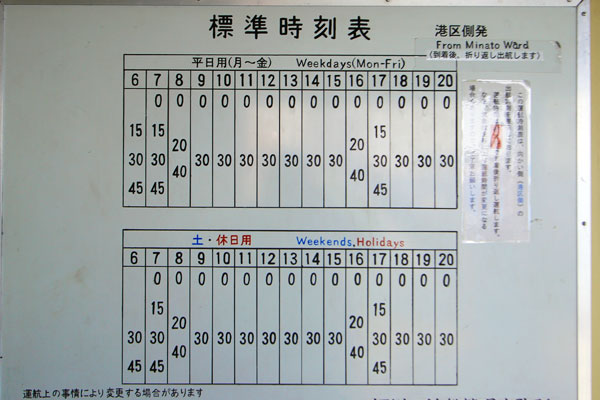 標準時刻表
港区側発
From Minato Ward
(到着後、折り返し出航します)
平日用(月〜金) Weekdays(Mon-Fri)
6 7 8 9 10 11 12 13 14 15 16 17 18 19 20
0 0 0 0 0 0 0 0 0 0 0 0 0 0
15 15 15
20 20
30 30 30 30 30 30 30 30 30 30 30 30 30
40 40
45 45 45
土・休日用 Weekends,Holidays
6 7 8 9 10 11 12 13 14 15 16 17 18 19 20
0 0 0 0 0 0 0 0 0 0 0 0 0 0 0
15 15
20 20
30 30 30 30 30 30 30 30 30 30 30 30 30
40 40
45 45 45
運航上の事情により変更する場合があります